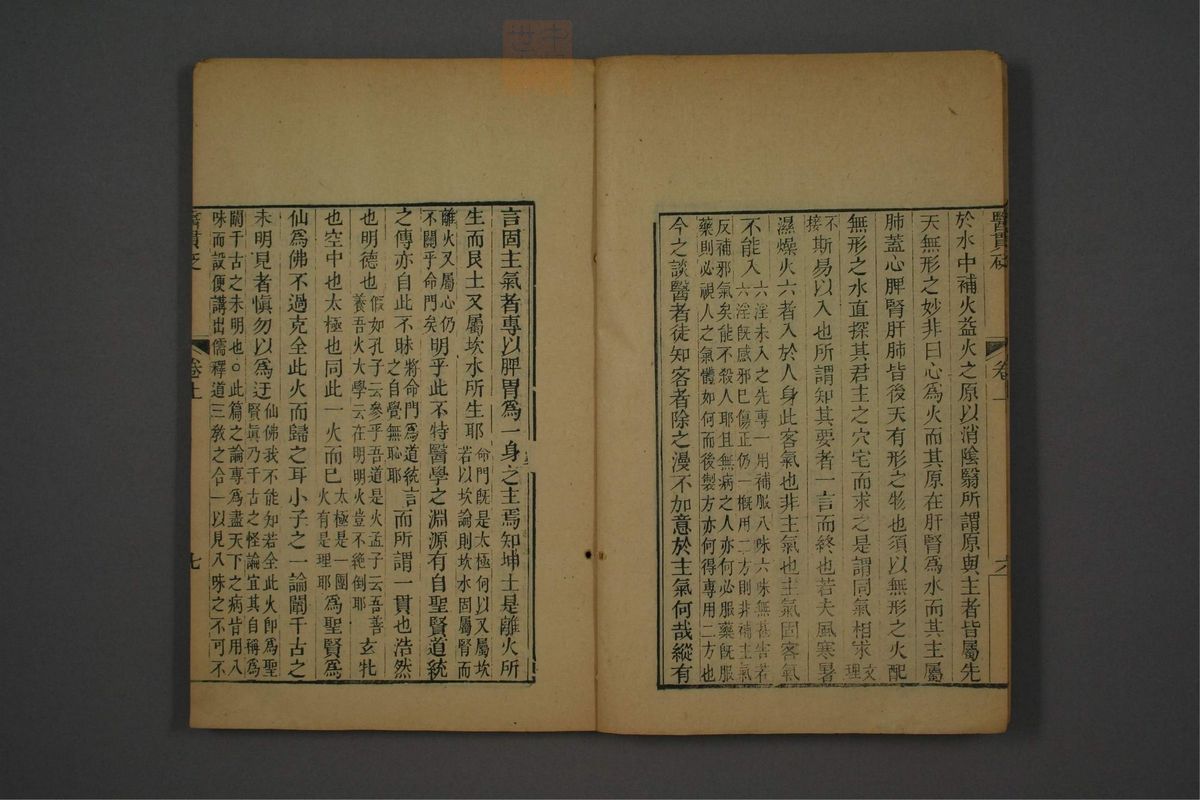 醫貫砭
卷上
六
於水中補火益火之原以消陰翳所謂原與主者皆屬先
天無形之妙非曰心爲火而其原在肝腎爲水而其主屬
肺蓋心脾腎肝肺皆後天有形之物也須以無形之火配
無形之水直探其君主之穴宅而求之是謂同氣相求文理
不接斯易以入也所謂知其要者一言而終也若夫風寒暑
濕燥火六者入於人身此客氣也非主氣也主氣固客氣
不能入六淫未入之先專一用補服八味六味無甚害若
六淫旣感邪已傷正仍一概用二方則非補主氣
反補邪氣矣能不殺人耶且無病之人亦何必服藥旣服
藥則必視人之氣體如何而後製方亦何得專用二方也
今之談醫者徒知客者除之漫不加意於主氣何哉縱有
言固主氣者專以脾胃爲一身之主焉知坤土是離火所
生而艮土又屬坎水所生耶命門旣是太極何以又屬坎
若以坎論則坎水固屬腎而
離火又屬心仍
不關乎命門矣明乎此不特醫學之淵源有自聖賢道統
之傳亦自此不昧將命門爲道統言
之自覺無恥耶而所謂一貫也浩然
也明德也假如孔子云參乎吾道是火孟子云吾善
養吾火大學云在明明火豈不絕倒耶玄牝
也空中也太極也同此一火而已太極是一團
火有是理耶爲聖賢爲
仙爲佛不過克全此火而歸之耳小子之一論闡千古之
未明見者愼勿以爲迂仙佛我不能知若全此火卽爲聖
賢眞乃千古之怪論宜其自稱爲
闡千古之未明也○此篇之論專爲盡天下之病皆用八
味而設便講出儒釋道三敎之合一以見八味之不可不
醫貫砭
卷上
七